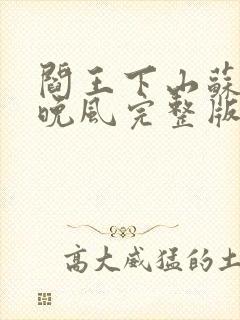 閻王下山蘇
晚風完整版
高大威猛的土